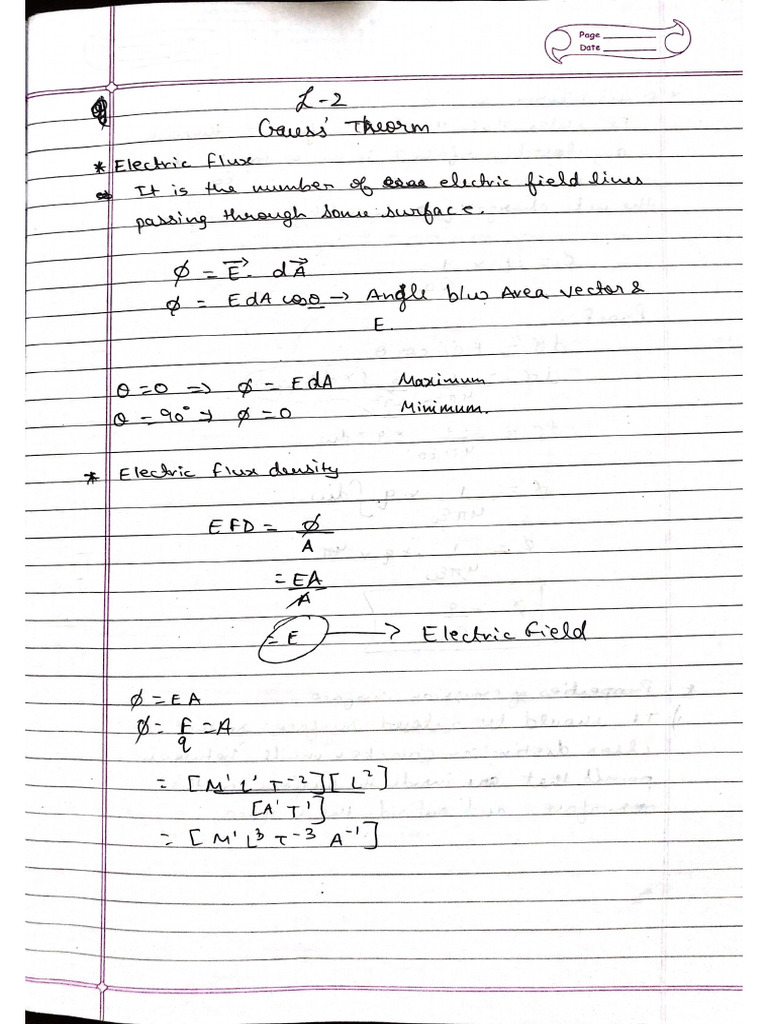 Page
Date
L-2
Gauss' Theorm
* Electric flux
⇒ It is the number of electric field lines
passing through some surface.
ϕ = E⃗. dA⃗
ϕ = EdA cosθ → Angle b/w Area vector &
E.
θ = 0 => ϕ = EdA Maximum
θ = 90° → ϕ = 0 Minimum.
* Electric flux density
EFD = ϕ/A
= EA/A
= E → Electric field
ϕ = EA
ϕ = F/q = A
= [M¹L¹T⁻²][L²]/[A¹T¹]
= [M¹L³T⁻³A⁻¹]